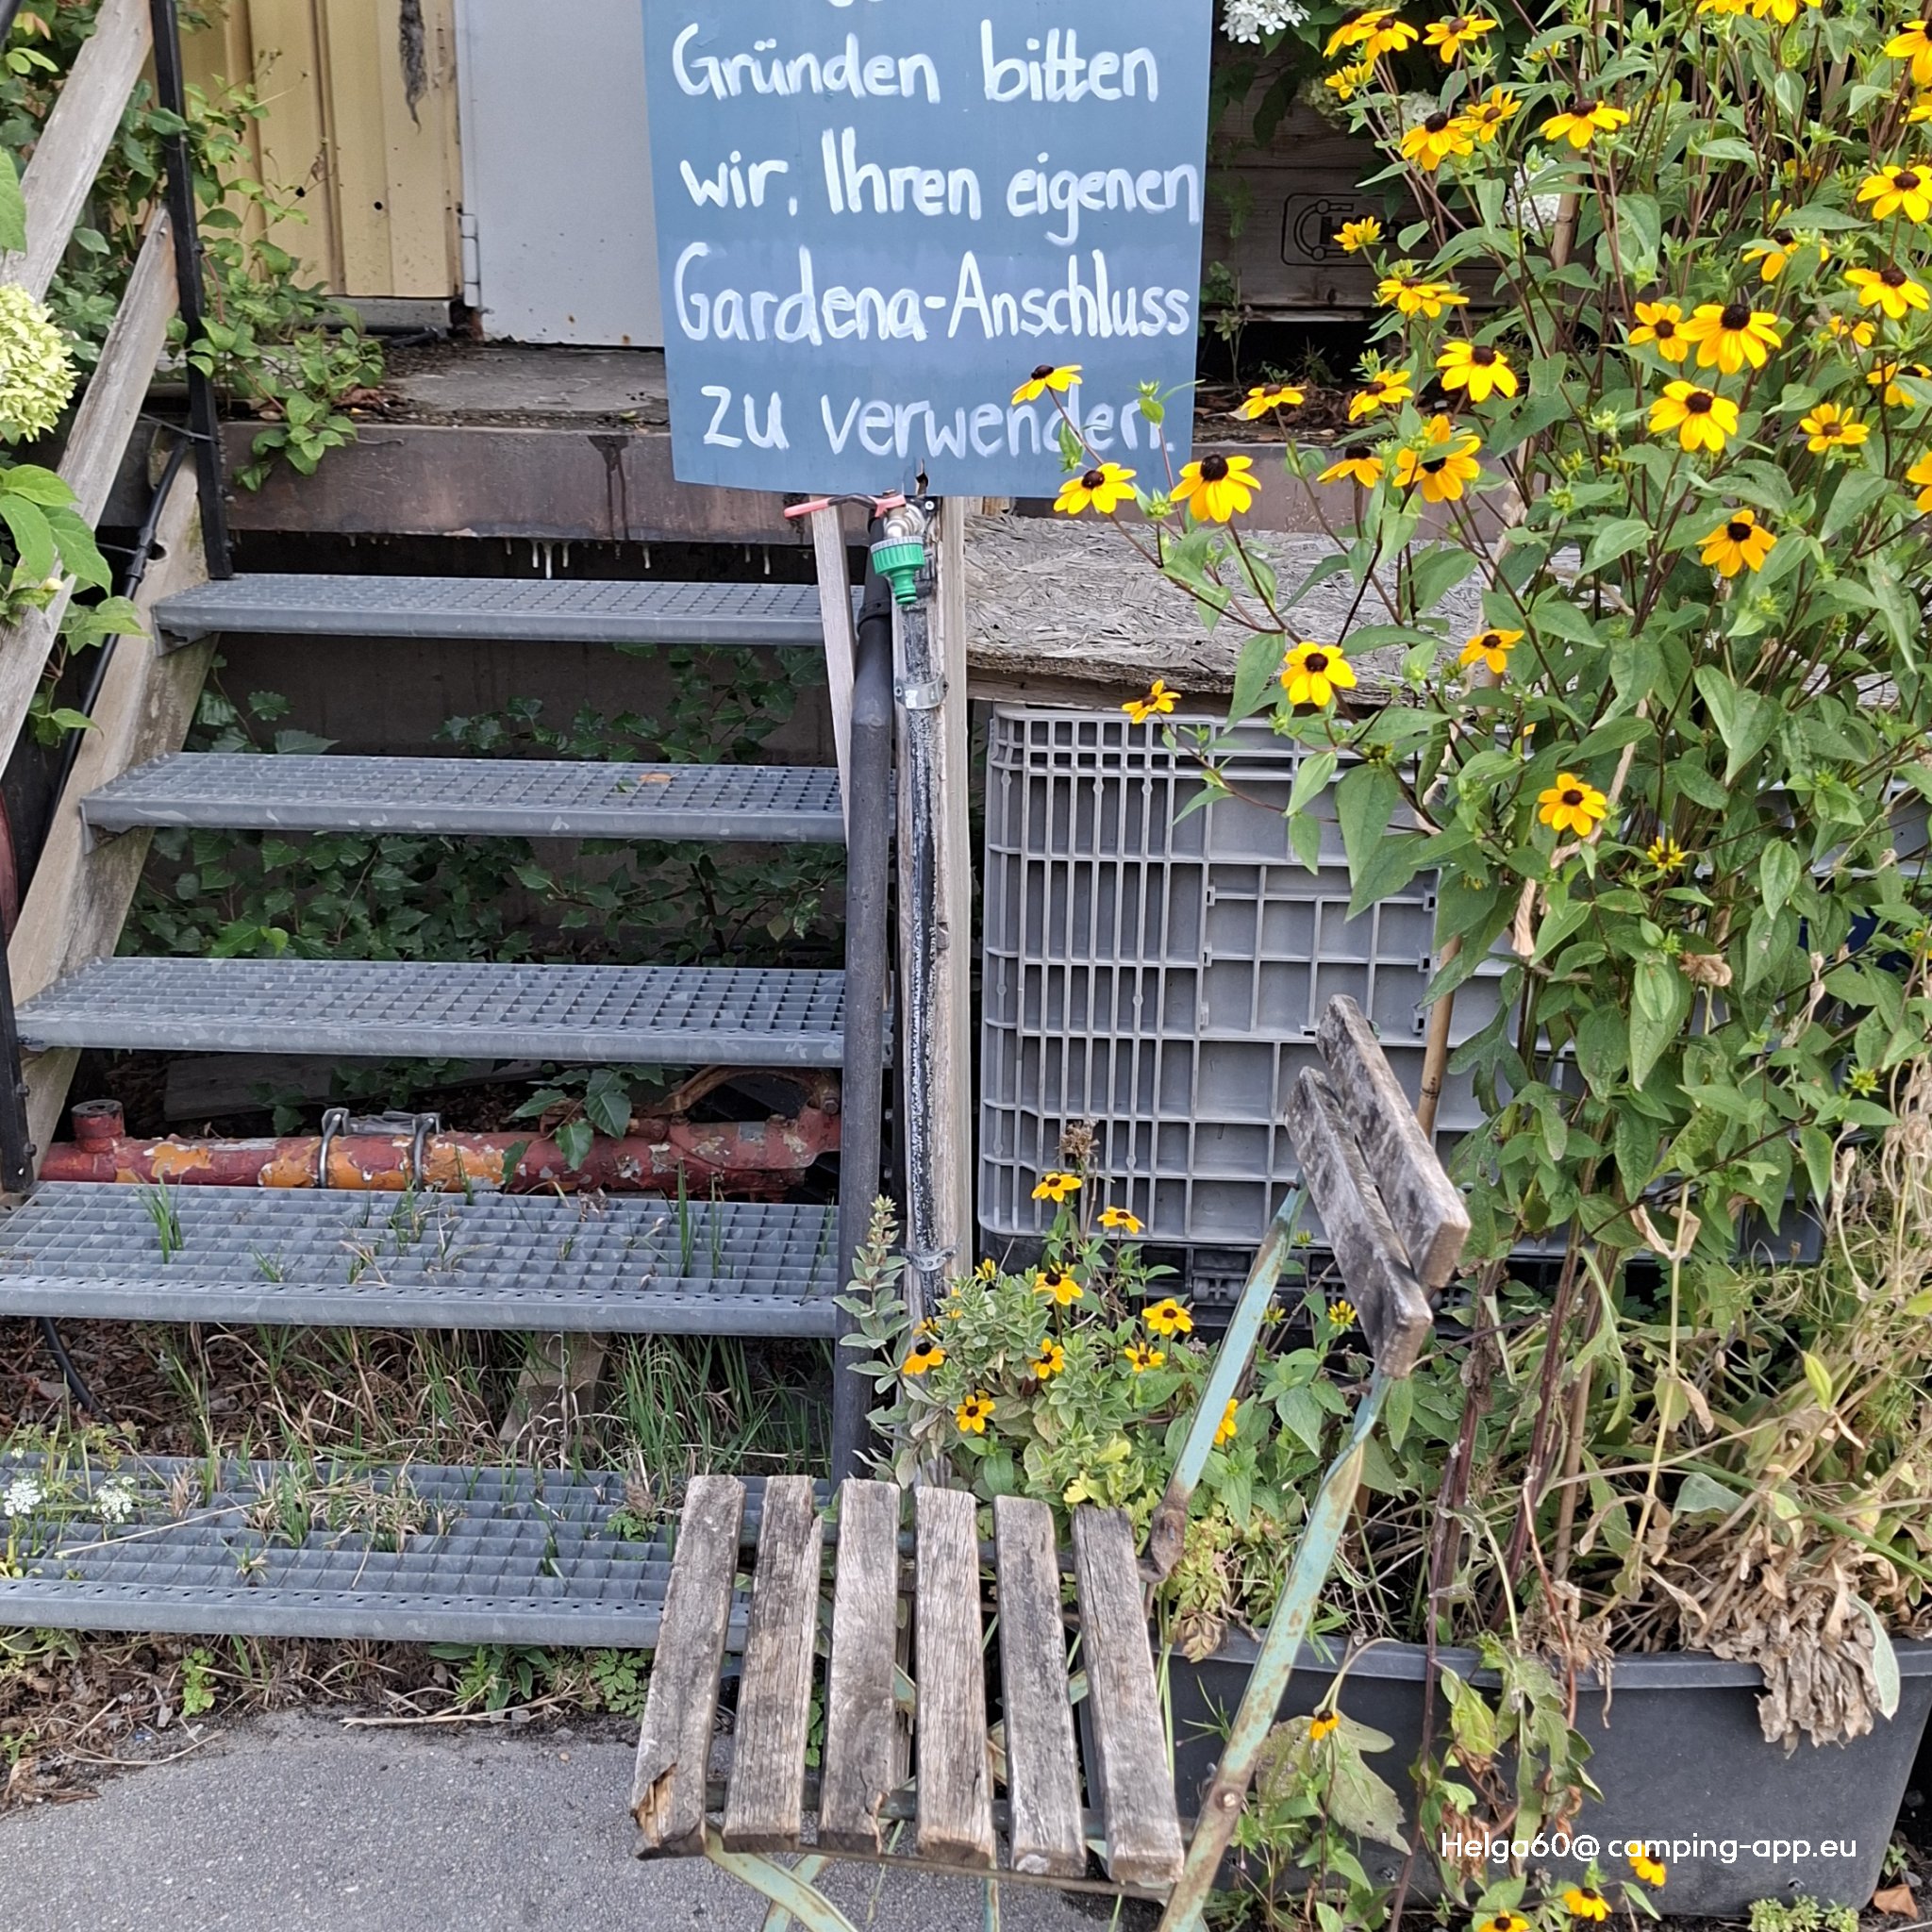 Gründen bitten
wir, Ihren eigenen
Gardena-Anschluss
zu verwenden.
Helga60@ camping-app.eu